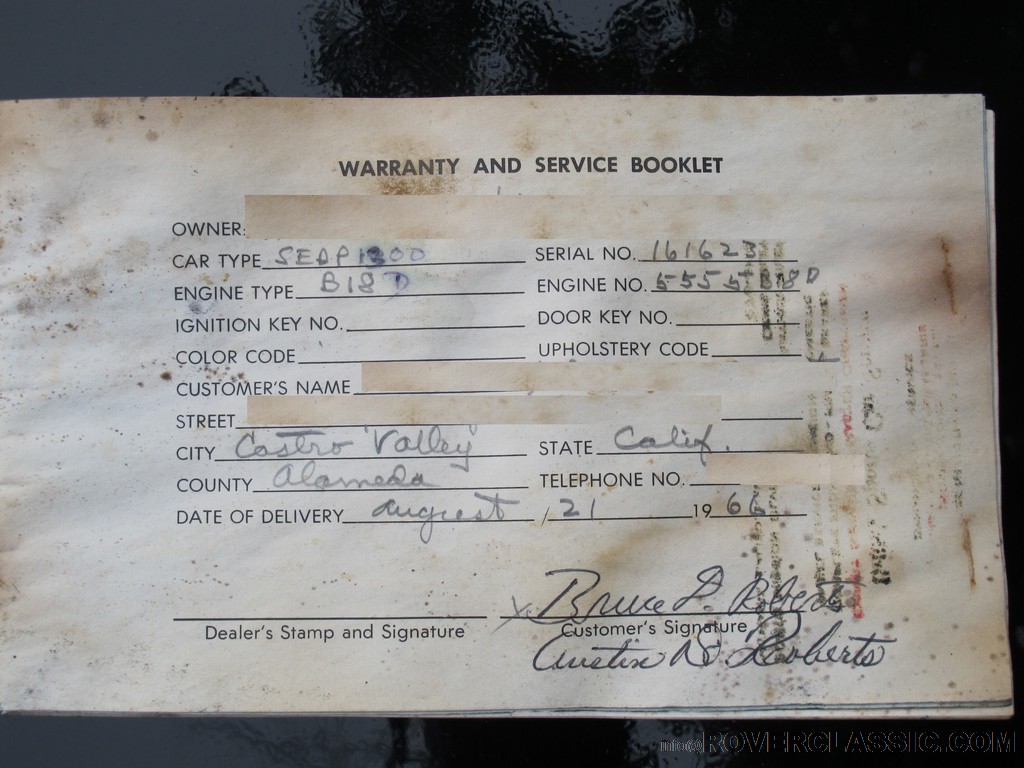 WARRANTY AND SERVICE BOOKLET
OWNER:
CAR TYPE SEDP1800 SERIAL NO. 161623
ENGINE TYPE B18D ENGINE NO. 5555B18D
IGNITION KEY NO. DOOR KEY NO.
COLOR CODE UPHOLSTERY CODE
CUSTOMER'S NAME
STREET
CITY Castro Valley STATE Calif.
COUNTY Alameda TELEPHONE NO.
DATE OF DELIVERY August / 21 1966
x Bruce D. Roberts
Dealer's Stamp and Signature Customer's Signature
Austin D. Roberts
info@ROVERCLASSIC.COM